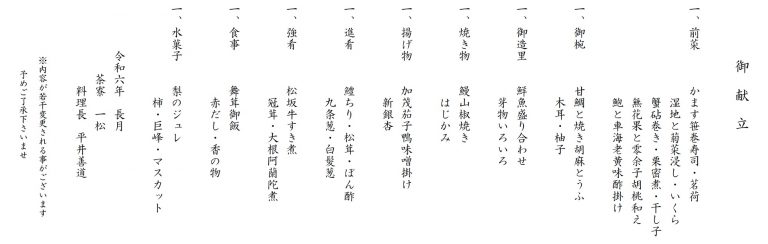 御献立
一、前菜　かます笹巻寿司・茗荷
湿地と菊菜浸し・いくら
蟹砧巻き・栗蜜煮・干し子
無花果と零余子胡桃和え
鮑と車海老黄味酢掛け
一、御椀　甘鯛と焼き胡麻とうふ
木耳・柚子
一、御造里　鮮魚盛り合わせ
芽物いろいろ
一、焼き物　鰻山椒焼き
はじかみ
一、揚げ物　加茂茄子鴨味噌掛け
新銀杏
一、進肴　鱧ちり・松茸・ぽん酢
九条葱・白髪葱
一、強肴　松坂牛すき煮
冠茸・大根阿蘭陀煮
一、食事　舞茸御飯
赤だし・香の物
一、水菓子　梨のジュレ
柿・巨峰・マスカット
令和六年　長月
茶寮　一松
料理長　平井善道
※内容が若干変更される事がございます
予めご了承下さいませ